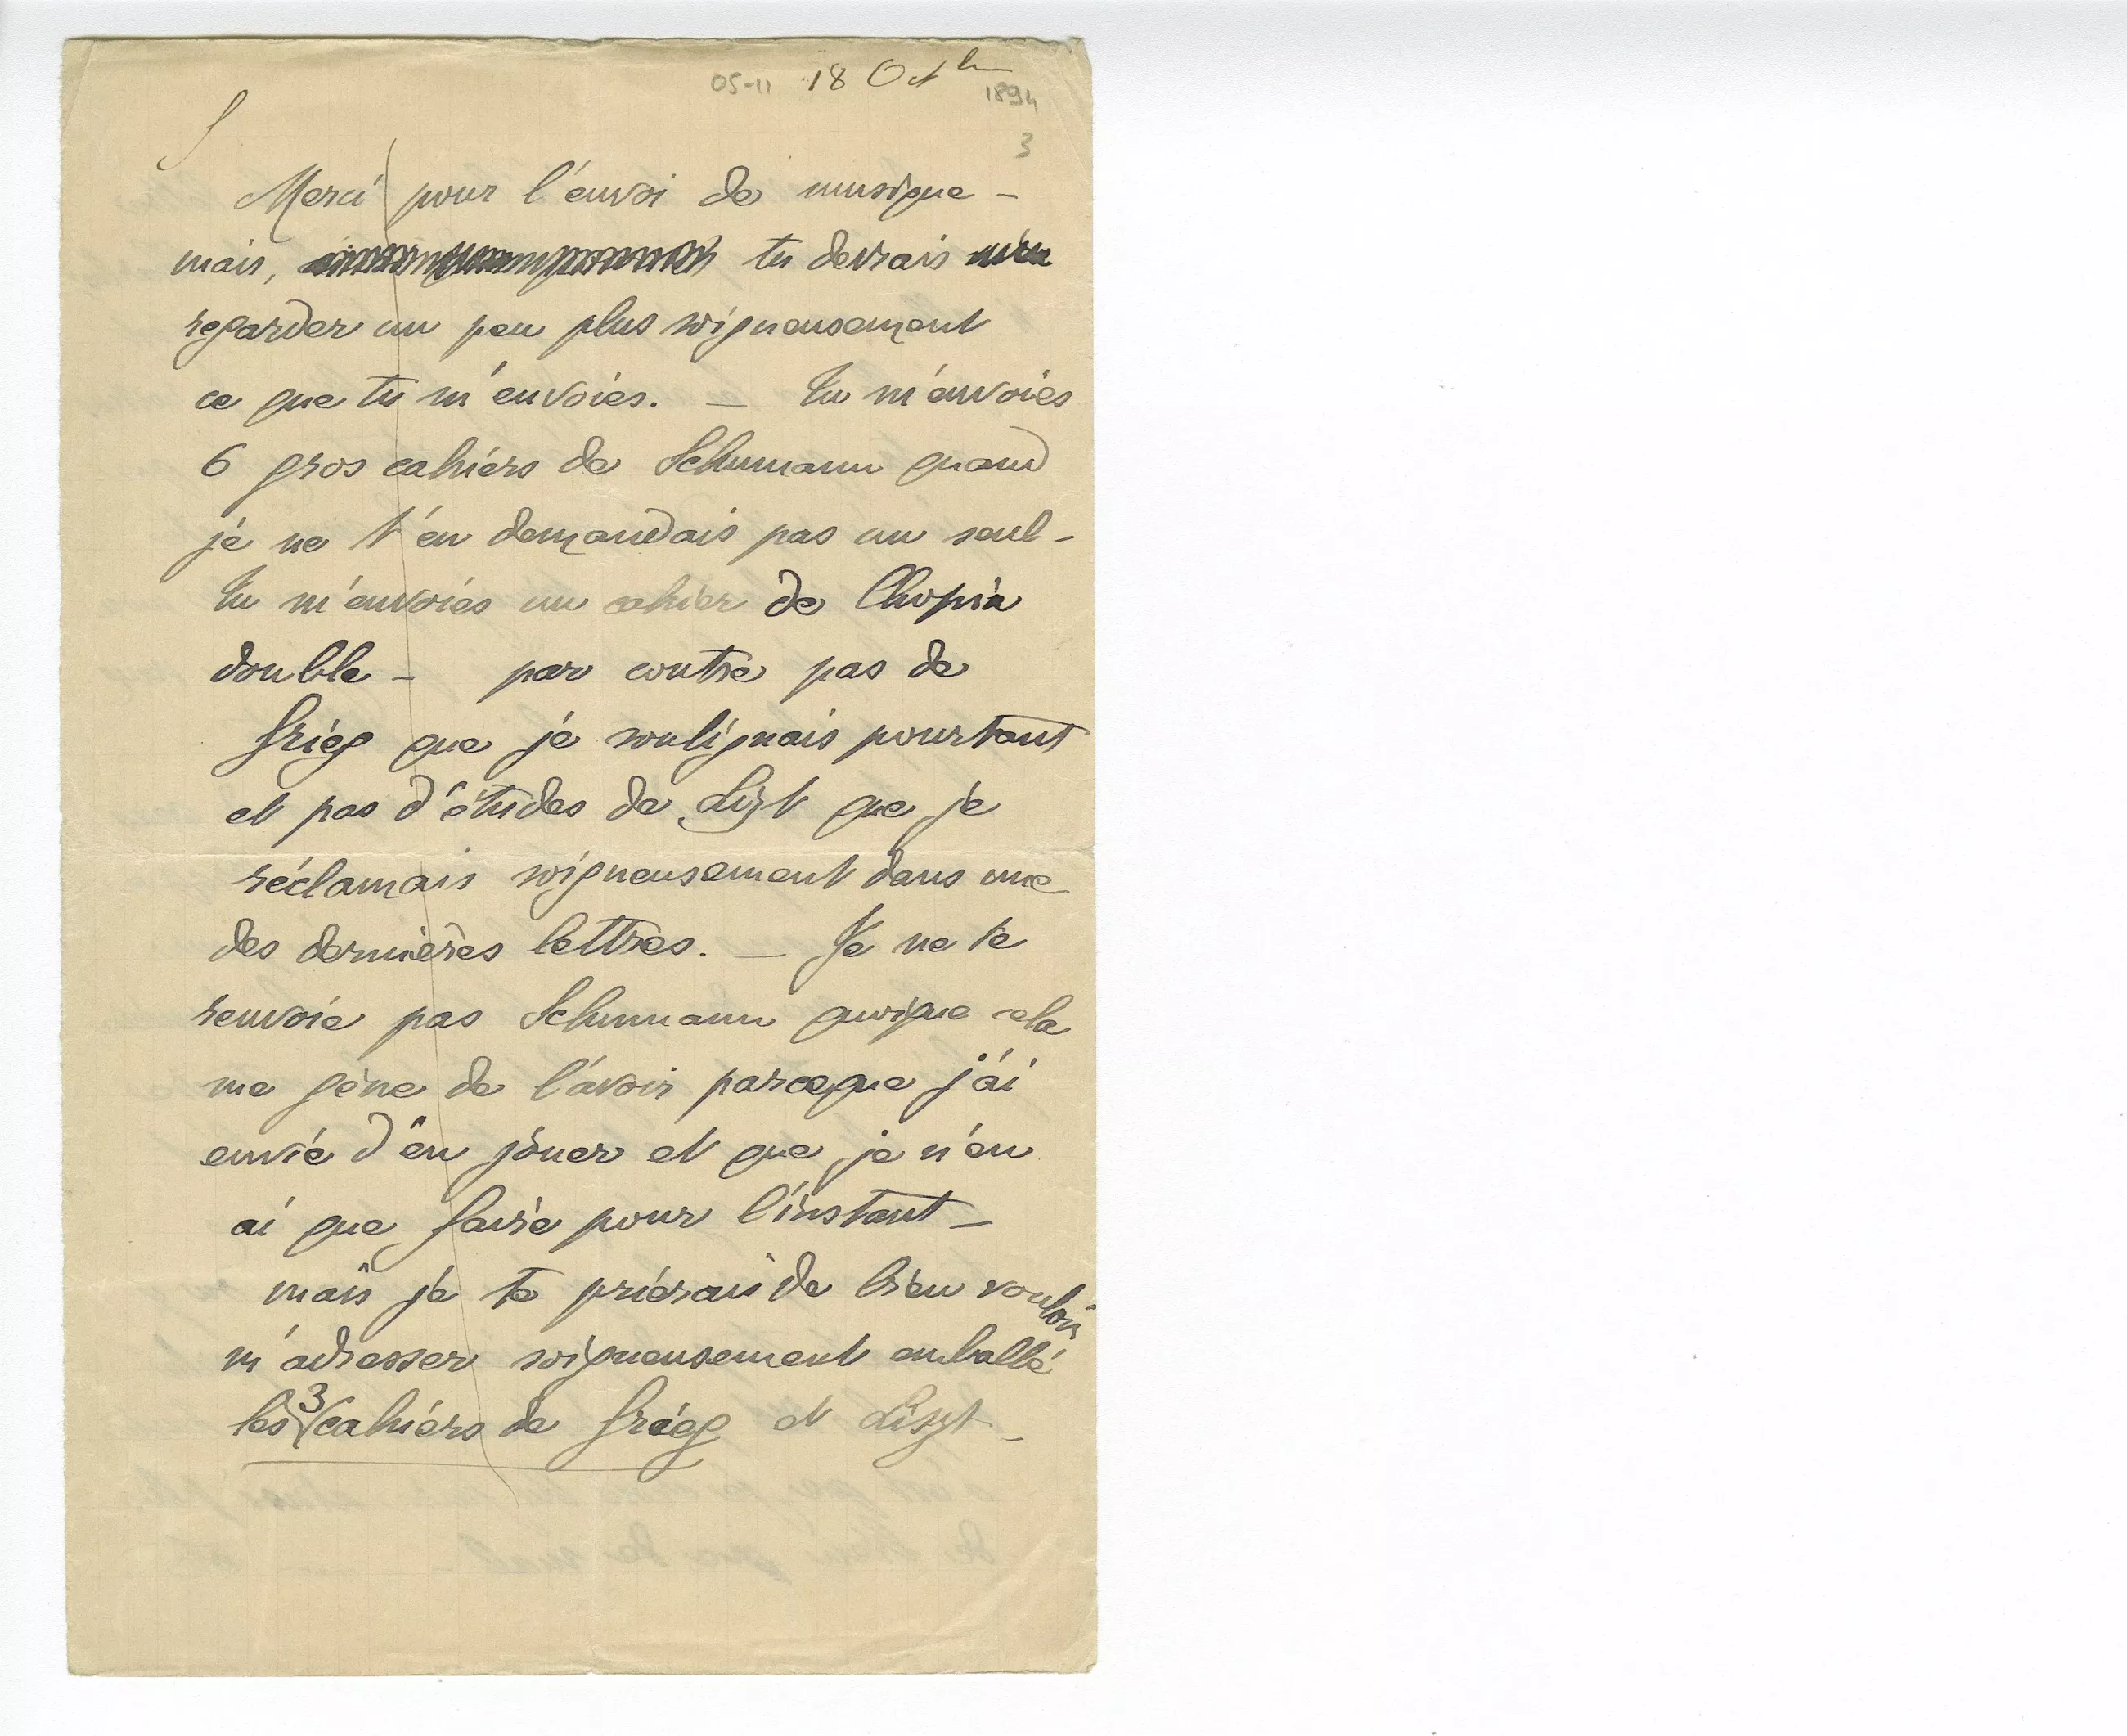 05-11 18 Oct bre
1894
3
Merci pour l'envoi de musique –
mais, tu devrais
regarder un peu plus soigneusement
ce que tu m'envoies. – Tu m'envoies
6 gros cahiers de Schumann quand
je ne t'en demandais pas un seul –
Tu m'envoies un cahier de Chopin
double – par contre pas de
Grieg que je soulignais pourtant
et pas d'études de Liszt que je
réclamais soigneusement dans une
des dernières lettres. – Je ne te
renvoie pas Schumann quoique cela
me gène de l'avoir parceque j'ai
envie d'en jouer et que je n'en
ai que faire pour l'instant –
mais je te prierais de bien vouloir
m'adresser soigneusement emballé
les 3 cahiers de Grieg et Liszt –